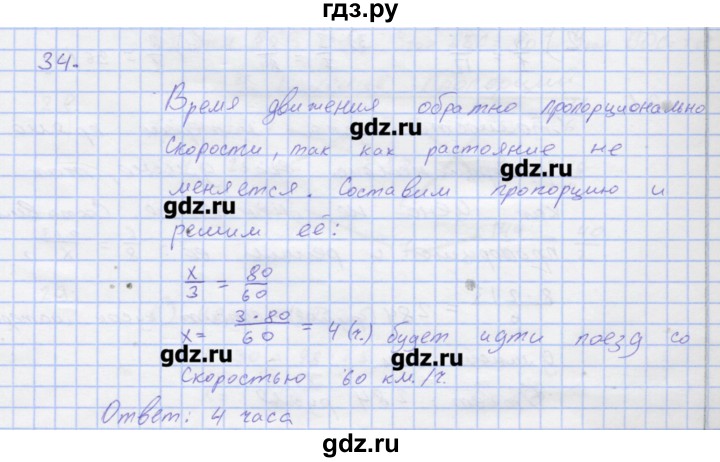 гдз.ру
34.
Время движения обратно пропорционально
gdz.ru
скорости, так как растояние не
gdz.ru
меняется. Составим пропорцию и
gdz.ru
решим её:
x/3 = 80/60
gdz.ru
x= 3·80/60 = 4 (ч.) будет идти поезд со
gdz.ru gdz.ru
скоростью 60 км./ч.
Ответ: 4 часа
gdz.ru